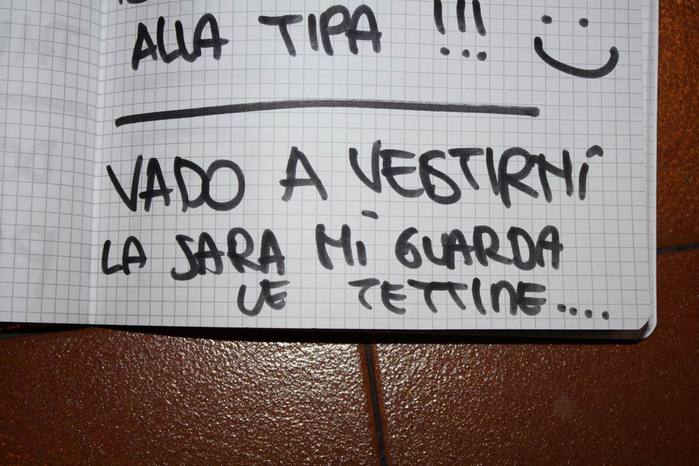 ALLA TIPA !!!
VADO A VESTIRMI
LA SARA MI GUARDA
LE TETTINE....